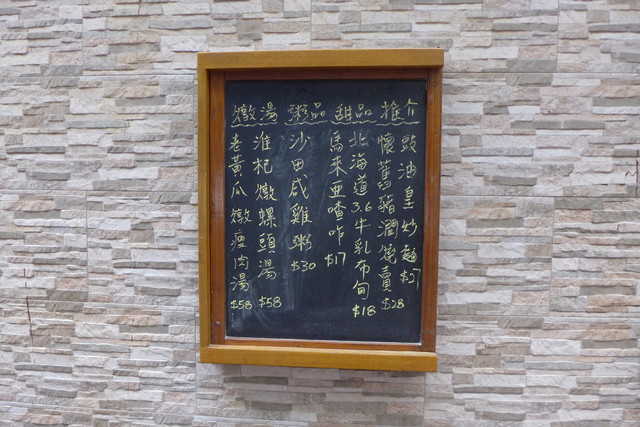 燉湯 粥品 甜品 推介
豉油皇炒麵 $27
懷舊豬潤燒賣 $28
北海道3.6牛乳布甸 $18
馬來亜喳咋 $17
沙田咸雞粥 $30
淮杞燉螺頭湯 $58
老黃瓜燉瘦肉湯 $58